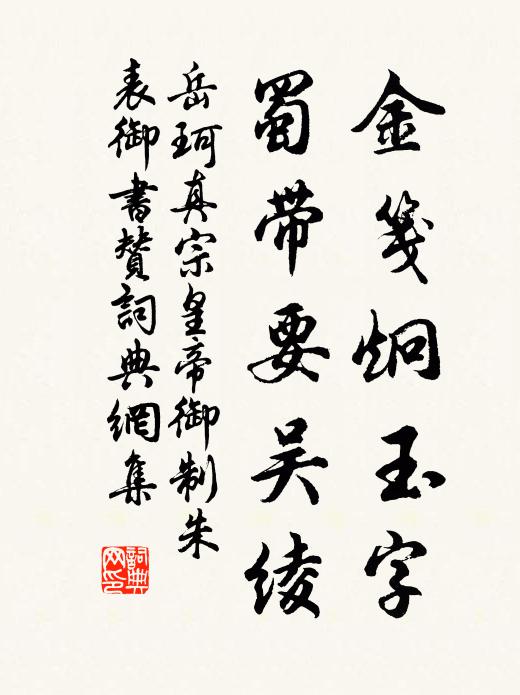 金箋炯玉字
蜀带要吴绫
岳珂真宗皇帝御制朱
表御書贊詞典網集
詞典网印